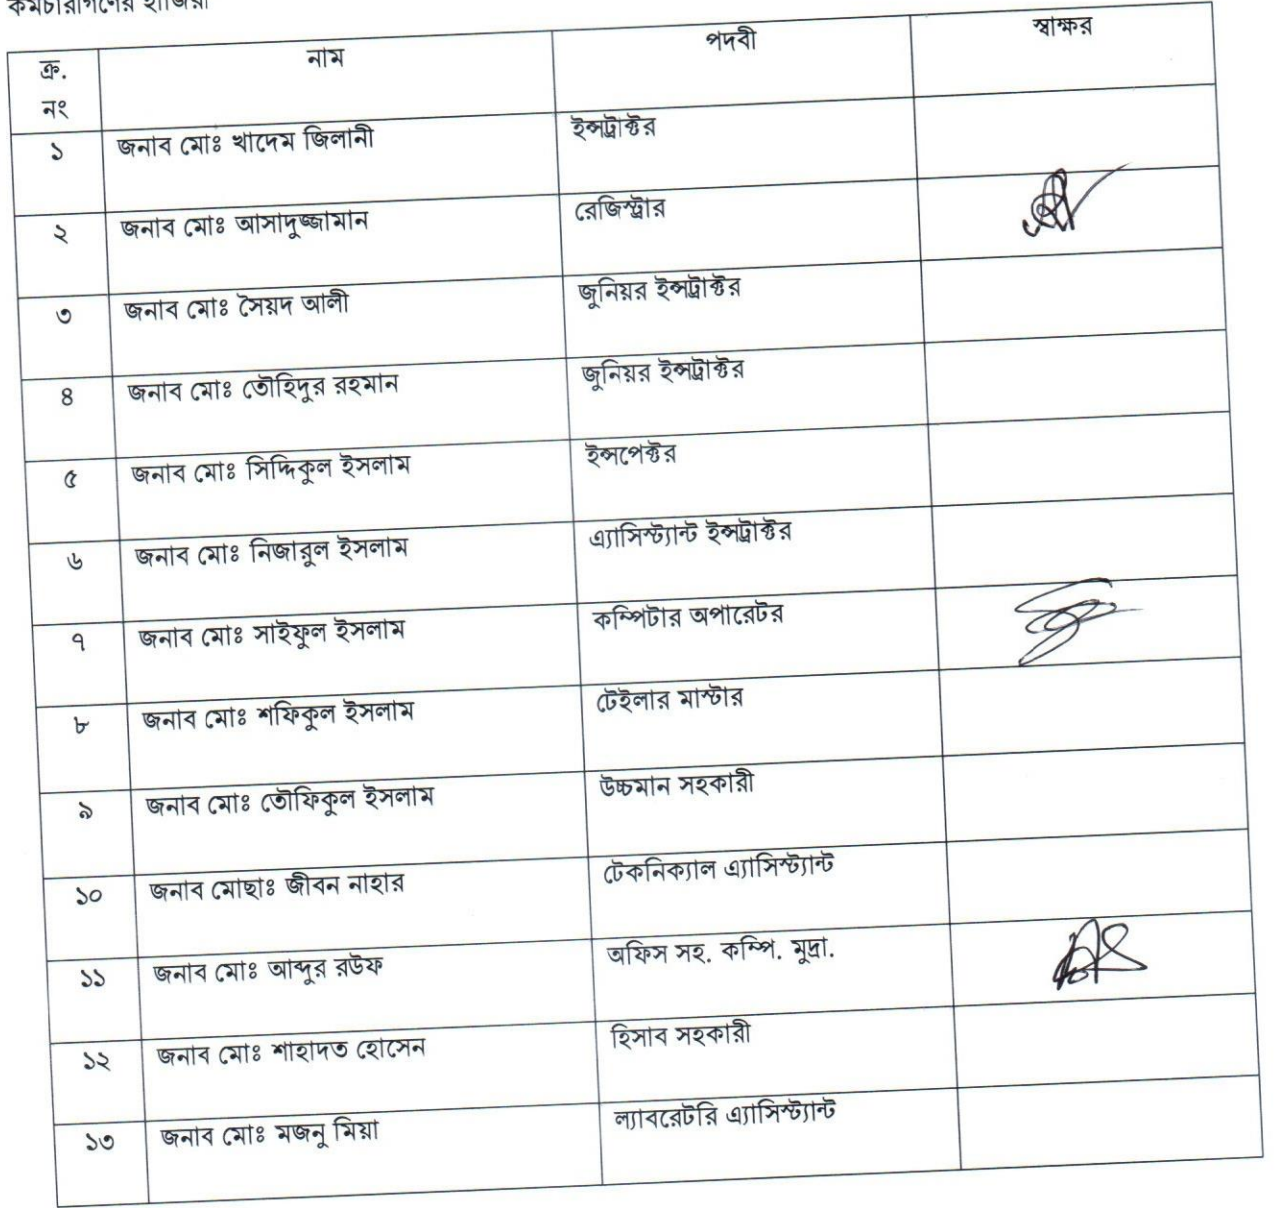 কর্মচারীগণের হাজিরা
ক্র. নং নাম পদবী স্বাক্ষর
১ জনাব মোঃ খাদেম জিলানী ইন্সট্রাক্টর
২ জনাব মোঃ আসাদুজ্জামান রেজিস্ট্রার
৩ জনাব মোঃ সৈয়দ আলী জুনিয়র ইন্সট্রাক্টর
৪ জনাব মোঃ তৌহিদুর রহমান জুনিয়র ইন্সট্রাক্টর
৫ জনাব মোঃ সিদ্দিকুল ইসলাম ইন্সপেক্টর
৬ জনাব মোঃ নিজারুল ইসলাম এ্যাসিস্ট্যান্ট ইন্সট্রাক্টর
৭ জনাব মোঃ সাইফুল ইসলাম কম্পিটার অপারেটর
৮ জনাব মোঃ শফিকুল ইসলাম টেইলার মাস্টার
৯ জনাব মোঃ তৌফিকুল ইসলাম উচ্চমান সহকারী
১০ জনাব মোছাঃ জীবন নাহার টেকনিক্যাল এ্যাসিস্ট্যান্ট
১১ জনাব মোঃ আব্দুর রউফ অফিস সহ. কম্পি. মুদ্রা.
১২ জনাব মোঃ শাহাদত হোসেন হিসাব সহকারী
১৩ জনাব মোঃ মজনু মিয়া ল্যাবরেটরি এ্যাসিস্ট্যান্ট